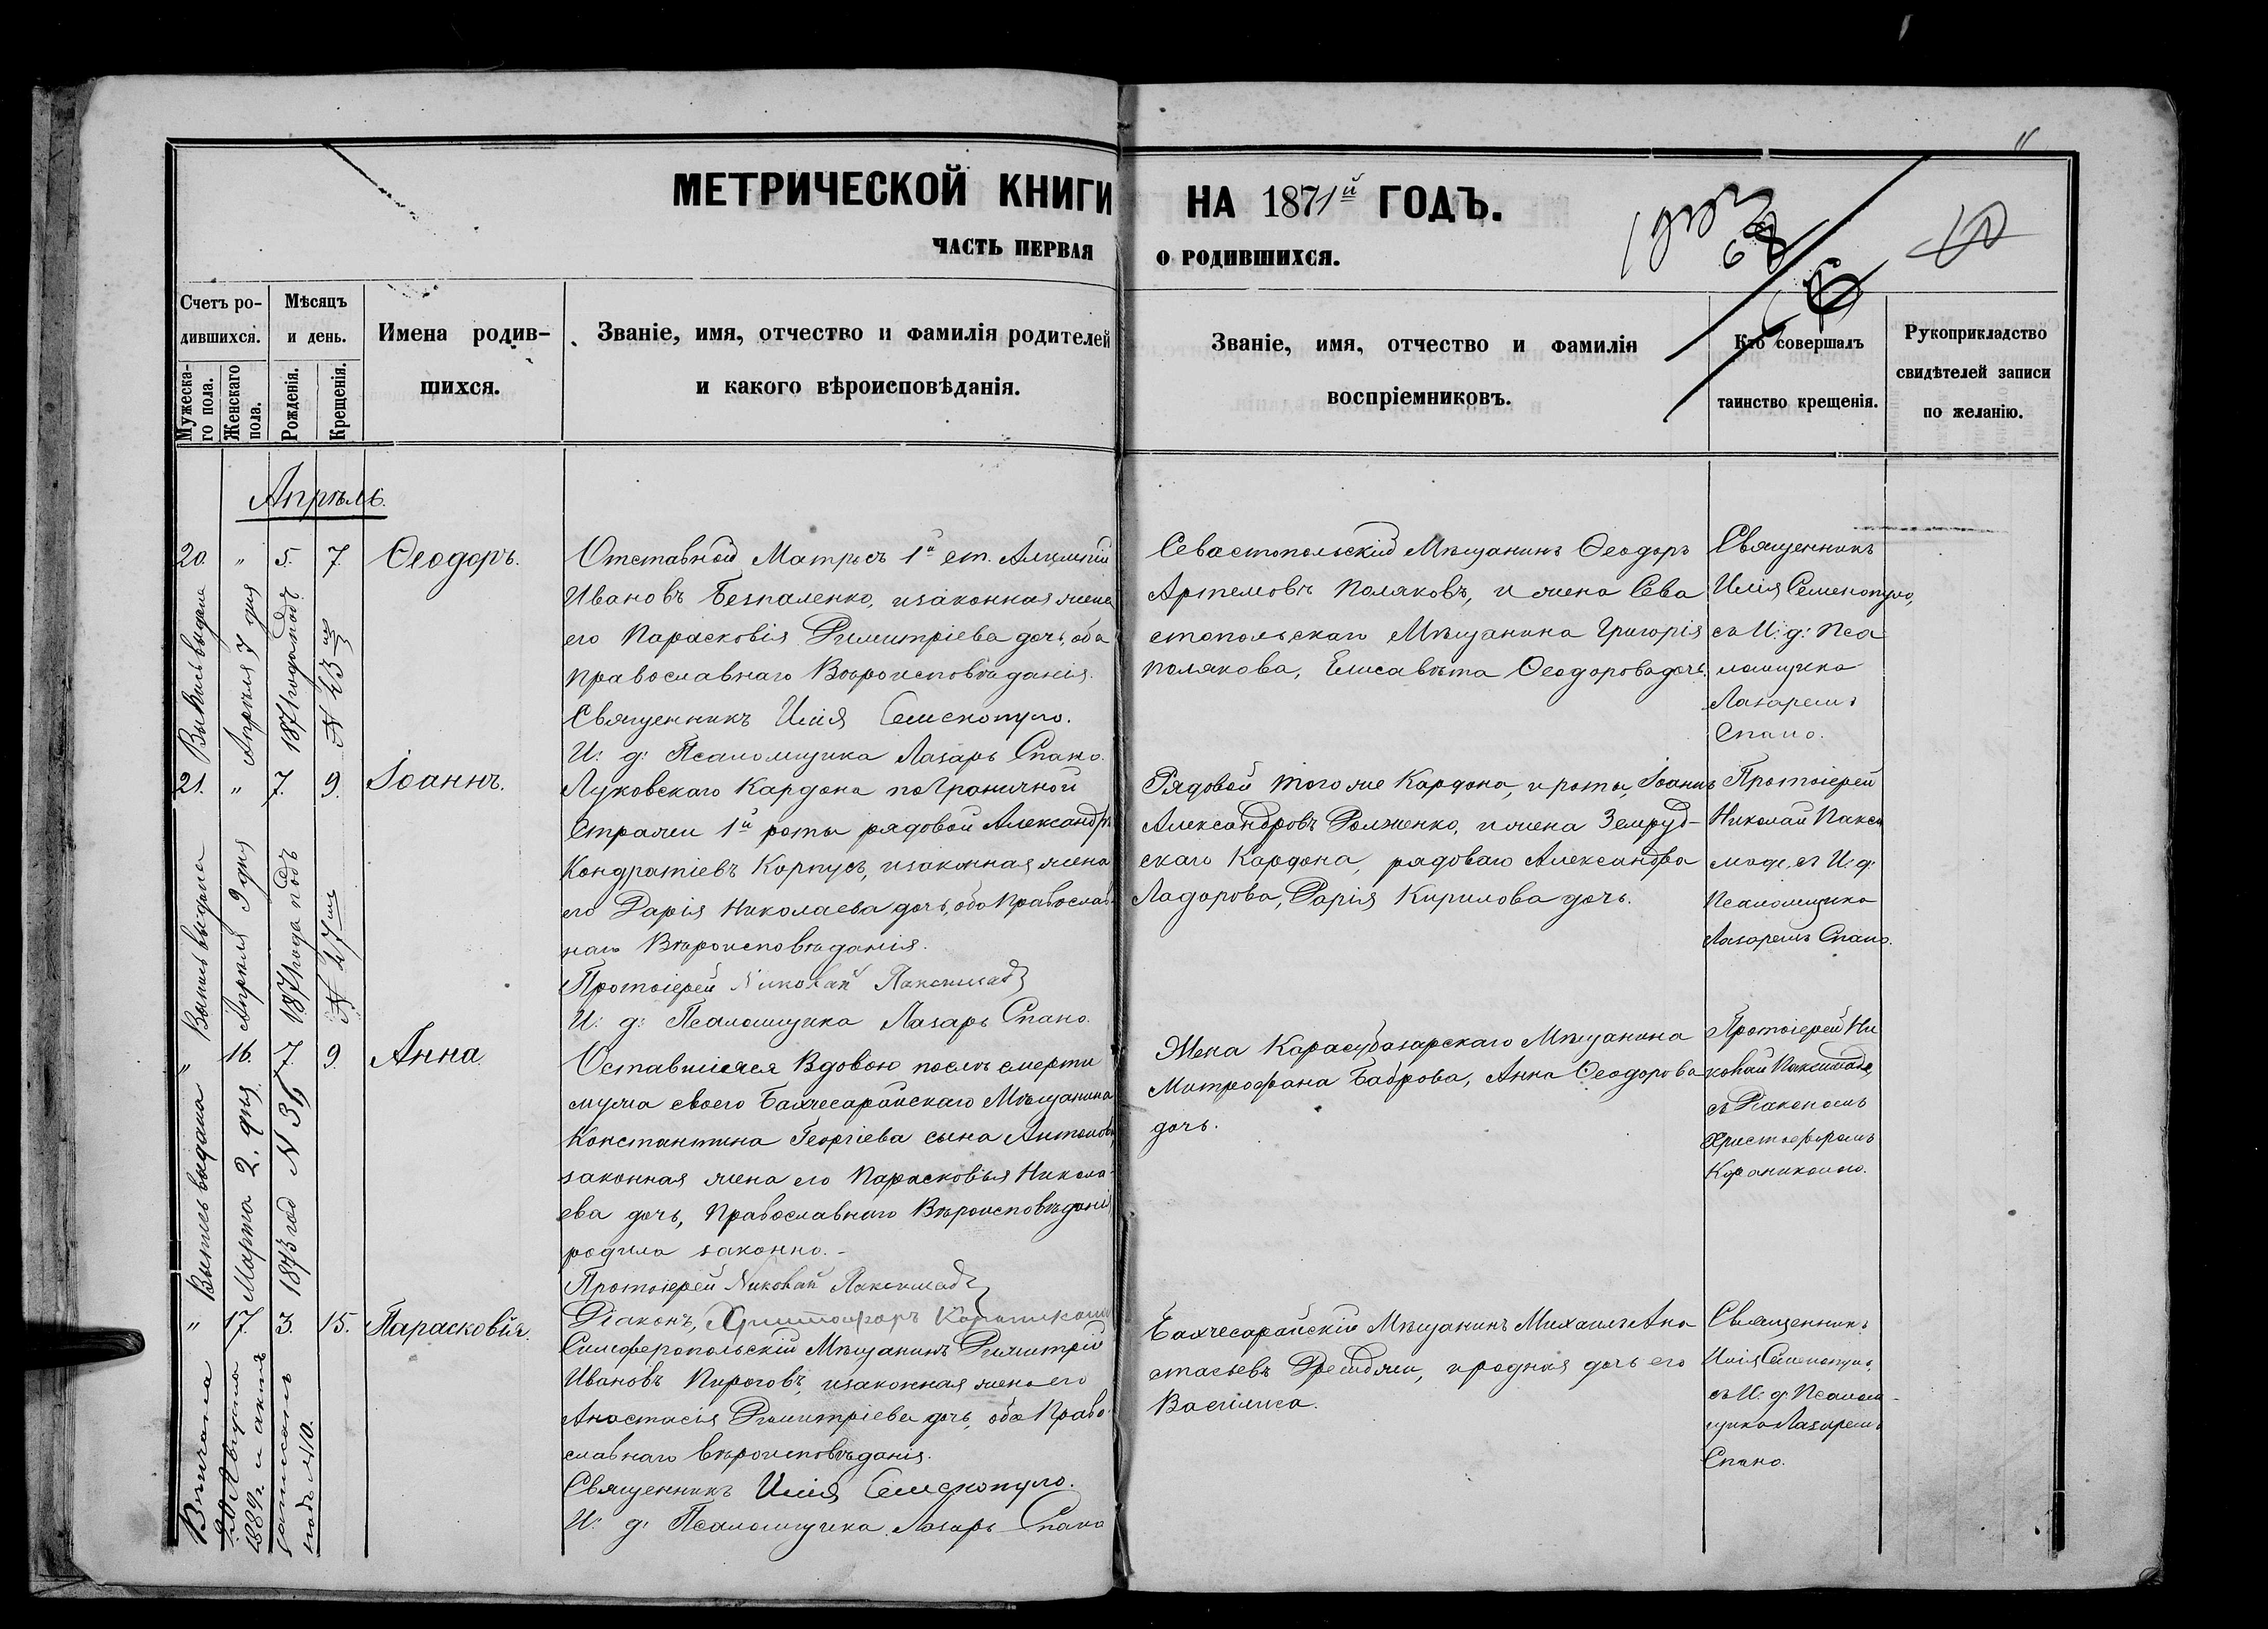 МЕТРИЧЕСКОЙ КНИГИ НА 1871й ГОДЪ.
ЧАСТЬ ПЕРВАЯ О РОДИВШИХСЯ.
Счетъ ро-
дившихся.
Мужеска-
го пола.
Женскаго
пола.
Мѣсяцъ
и день.
Рожденія.
Крещенія.
Имена родив-
шихся.
Званіе, имя, отчество и фамилія родителей
и какого вѣроисповѣданія.
Званіе, имя, отчество и фамилія
воспріемниковъ.
Кто совершалъ
таинство крещенія.
Рукоприкладство
свидѣтелей записи
по желанію.
Апрѣль.
20. " 5. 7. Ѳеодоръ.
Отставной Матросъ 1й ст.
Ивановъ Безпаленко, и законная жена
его Парасковія Димитріева дочь, оба
православнаго Вѣроисповѣданія.
Священникъ Илія Семенопуло.
И: д: Псаломщика Лазарь Спано.
Севастопольскій Мѣщанинъ Ѳеодоръ
Артемовъ Поляковъ, и жена Сева
стопольскаго Мѣщанина Григорія
Полякова, Елисавѣта Ѳеодорова дочь.
Священникъ
Илія Семенопуло,
съ И: д: Пса
ломщика
Лазаремъ
Спано.
Апрѣля 7 дня
1871 года подъ
№ 43
21. " 7. 9. Іоаннъ.
Луковскаго Кардона пограничной
Стражи 1й роты рядовой Александръ
Кондратіевъ Корпусъ, и законная жена
его Дарія Николаева дочь, оба Православ
наго Вѣроисповѣданія.
Протоіерей Николай
И: д: Псаломщика Лазарь Спано.
Рядовой того же Кардона, и роты, Іоаннъ
Александровъ Долженко, и жена Земруд-
скаго Кардона, рядоваго Александра
Ладорова, Дарія Кирилова дочь.
Протоіерей
Николай Пакси
маде, съ И: д:
Псаломщика
Лазаремъ Спано.
Выпись выдана
Апрѣля 9 дня
1871 года подъ
№ 47
" 16. 7. 9. Анна.
Оставшаяся Вдовою послѣ смерти
мужа своего Бахчесарайскаго Мѣщанина
Константина Георгіева сына
законная жена его Парасковія Никола
ева дочь, Православнаго Вѣроисповѣданія
родила законно.-
Протоіерей Николай
Діаконъ, Христофоръ
Жена Карасубазарскаго Мѣщанина
Митрофана Баброва, Анна Ѳеодорова
дочь.
Протоіерей Ни
колай Паксимаде,
съ Діакономъ
Христофоромъ
Выпись выдана
Марта 2. дня
1873 год № 36
" 17. 3. 15. Парасковія.
Симферопольскій Мѣщанинъ Димитрій
Ивановъ Пироговъ, и законная жена его
Анастасія Димитріева дочь, оба Право
славнаго вѣроисповѣданія.
Священникъ Илія Семенопуло.
И: д: Псаломщика Лазарь Спано
Бахчесарайскій Мѣщанинъ Михаилъ Ана
стасьевъ и родная дочь его
Василиса.
Священникъ
Илія Семенопуло,
съ И: д: Псалом-
щика Лазаремъ
Спано.
Вѣнчана
1889г. и актъ
записанъ
подъ №10.